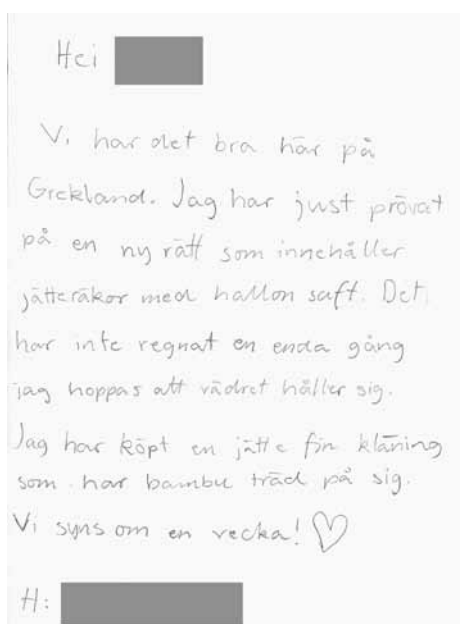 Hei
Vi har det bra här på
Grekland. Jag har just prövat
på en ny rätt som innehåller
jätteräkor med hallon saft. Det
har inte regnat en enda gång
jag hoppas att vädret håller sig.
Jag har köpt en jätte fin kläning
som har bambu träd på sig.
Vi syns om en vecka! ♡
H: